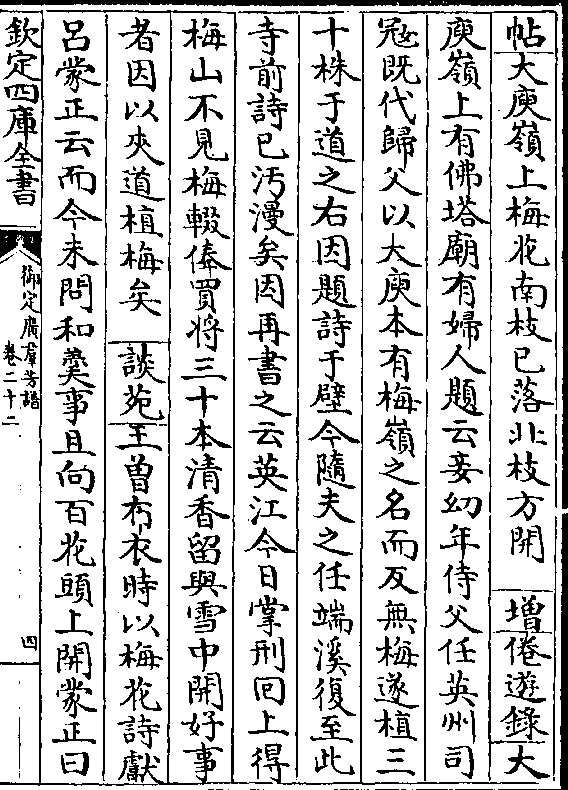 帖大庾嶺上梅花南枝已落北枝方開　增倦遊錄大
庾嶺上有佛塔廟有婦人題云妾幼年侍父任英州司
冦既代歸父以大庾本有梅嶺之名而反無梅遂植三
十株于道之右因題詩于壁今隨夫之任端溪復至此
寺前詩已汚漫矣因再書之云英江今日掌刑回上得
梅山不見梅輟俸買将三十本清香留與雪中開好事
者因以夾道植梅矣　談苑王曾布衣時以梅花詩獻
呂蒙正云而今未問和羮事且向百花頭上開蒙正曰
欽定四庫全書
御定廣羣芳譜
卷二十二
四